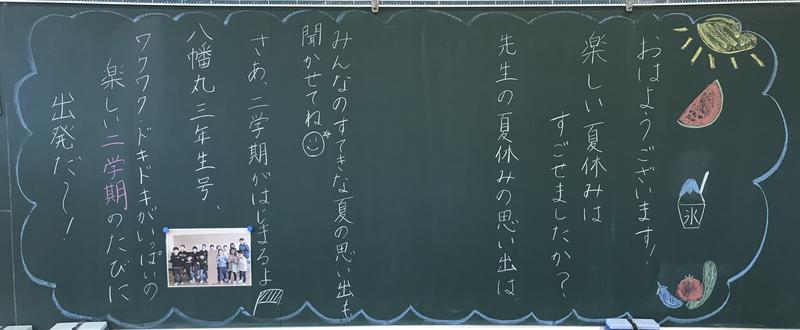 おはようございます!
楽しい夏休みは
すごせましたか?
先生の夏休みの思い出は
みんなのすてきな夏の思い出も
聞かせてね
さあ、二学期がはじまるよ
八幡丸三年生号、
ワクワク・ドキドキがいっぱいの
楽しい二学期のたびに
出発だ〜!
氷